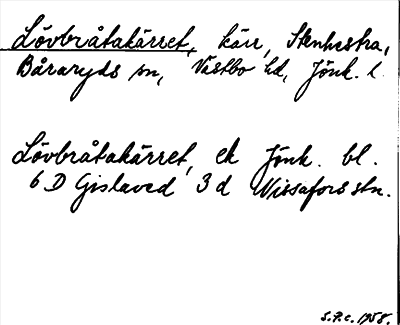 Lövbråtakärret, kärr, Stenhestra,
Båraryds sn, Västbo hd, Jönk. l.
Lövbråtakärret, ek Jönk. bl.
6 D Gislaved 3 d Nissafors stn.
S.P.c. 1958.